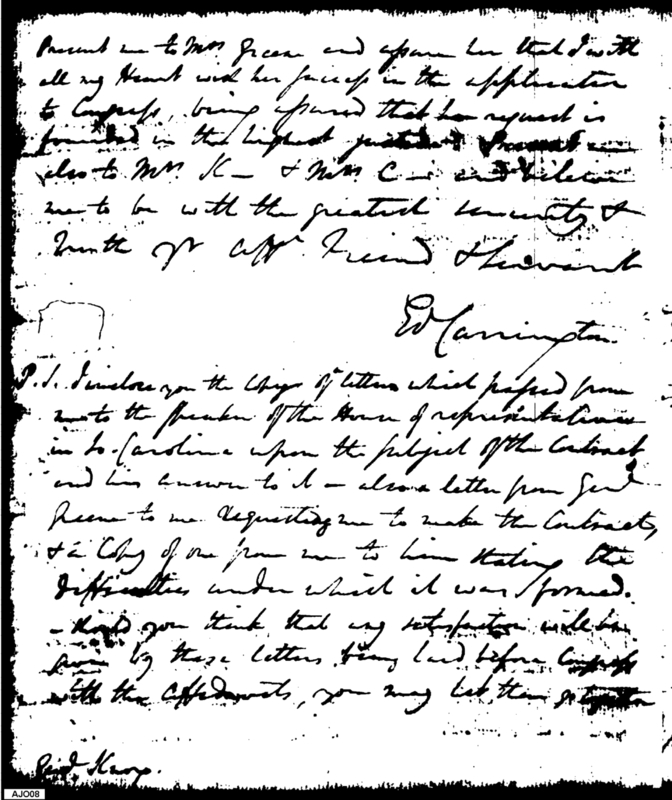 Present me to Mrs Greene and assure her that I with
all my Heart wish her success in the application
to Congress, being assured that her request is
founded in the highest Present me
also to Mrs K— & Mrs C— and believe
me to be with the greatest sincerity &
Truth yr affe. Friend & Servant
Ed Carrington
P.S. I inclose you the Copys of letters which passed from
me to the Speaker of the House of representatives
in So. Carolina upon the subject of the Contract
and his answer to it — also a letter from Genl
Greene to me requesting me to make the Contracts,
& a Copy of one from me to him stating the
difficulties under which it was formed.
— should you think that any satisfaction will be
given by these letters being laid before Congress
with the affidavits, you may let them go together
Genl Knox.
AJO08